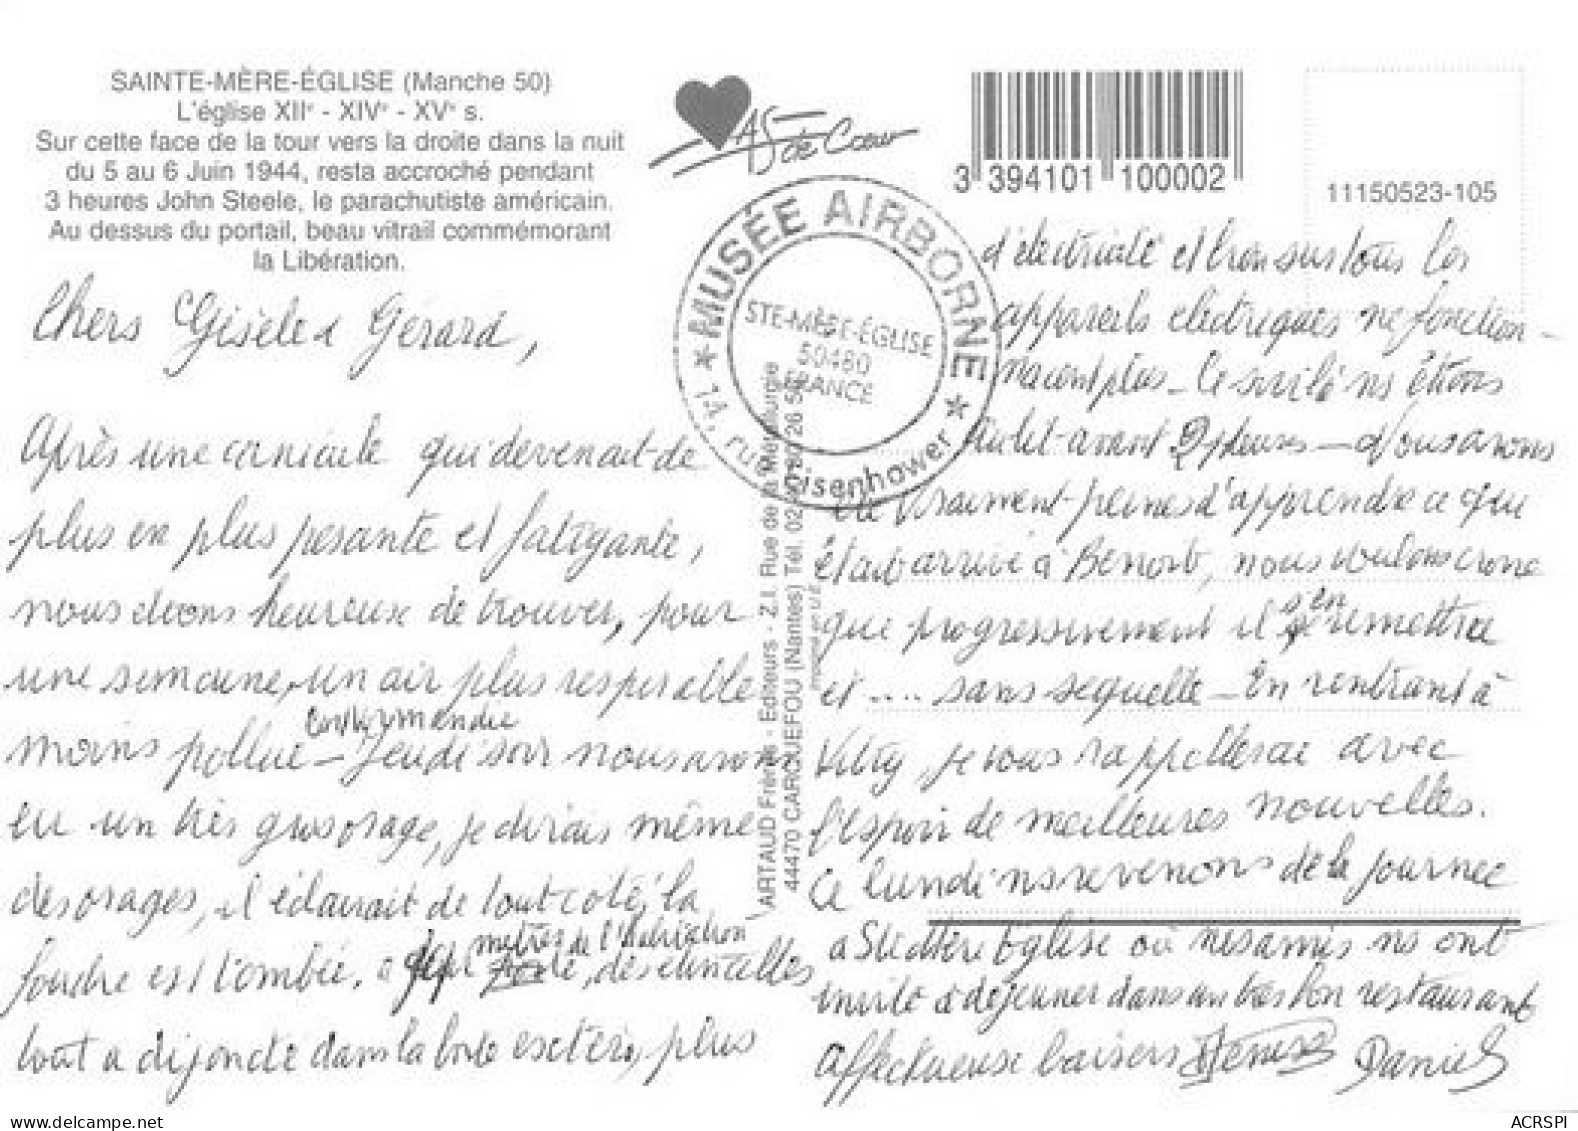 SAINTE-MÈRE-ÉGLISE (Manche 50)
L'église XIIe - XIVe - XVe s.
Sur cette face de la tour vers la droite dans la nuit
du 5 au 6 Juin 1944, resta accroché pendant
3 heures John Steele, le parachutiste américain.
Au dessus du portail, beau vitrail commémorant
la Libération.
AS de Cœur
3 394101 100002
11150523-105
MUSÉE AIRBORNE
STE-MÈRE-ÉGLISE
50480
FRANCE
14, rue Eisenhower
ARTAUD Frères - Editeurs - Z.I. Rue de la Métallurgie
44470 CARQUEFOU (Nantes) Tél. 02 40 26 5
Imprimé en U.E.
Chers Gisèle et Gérard,
Après une canicule qui devenait de
plus en plus pesante et fatigante,
nous étions heureux de trouver, pour
une semaine, un air plus respirable
en Normandie
moins pollué - Jeudi soir nous avons
eu un très gros orage, je dirais même
des orages, il éclairait de tout côté, la
mètres de l'habitation
foudre est tombée, a des étincelles
tout a disjoncté dans la boite extér, plus
d'électricité et bien sur tous les
appareils électriques ne fonction-
naient plus - Ce soir là ns étions
au lit avant 2 heures - Nous avons
été vraiment peinés d'apprendre ce qui
était arrivé à Benoit, nous voulons croire
que progressivement il s'en remettra
et .... sans sequelle - En rentrant à
Vitry, je vous rappellerai avec
l'espoir de meilleures nouvelles.
Ce lundi ns revenons de la journée
a Ste Mère Eglise où nos amis ns ont
invité à déjeuner dans un très bon restaurant
Affectueux baisers Denise Daniel
www.delcampe.net
ACRSPI